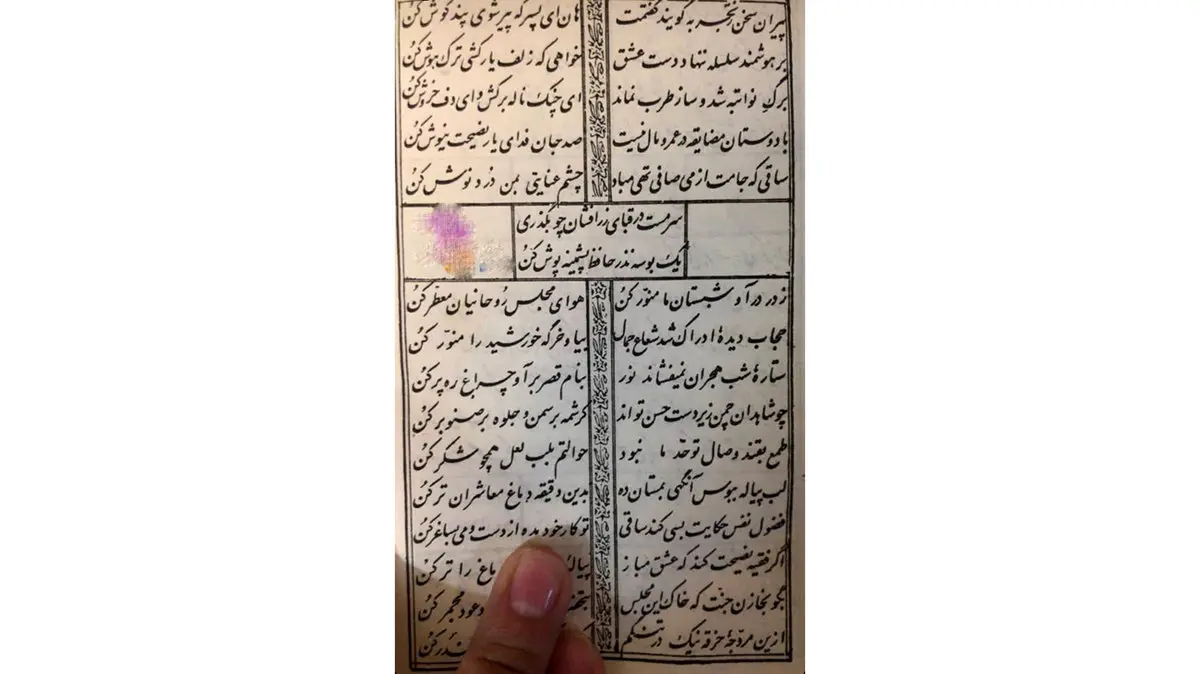 پیران سخن بتجربه گویند گفتمت هان ای پسر که پیر شوی پند گوش کن
بر هوشمند سلسله ننهاد دست عشق خواهی که زلف یار کشی ترک هوش کن
برگ نوا تبه شد و ساز طرب نماند ای چنگ ناله برکش و ای دف خروش کن
با دوستان مضایقه در عمر و مال نیست صد جان فدای یار نصیحت نیوش کن
ساقی که جامت از می صافی تهی مباد چشم عنایتی بمن درد نوش کن
سرمست در قبای زرافشان چو بگذری
یک بوسه نذر حافظ پشمینه پوش کن
ز در درآ و شبستان ما منور کن هوای مجلس روحانیان معطر کن
حجاب دیدهٔ ادراک شد شعاع جمال بیا و خرگه خورشید را منور کن
ستارهٔ شب هجران نمیفشاند نور ببام قصر برآ و چراغ ره بر کن
چو شاهدان چمن زیردست حسن تو اند کرشمه بر سمن و جلوه بر صنوبر کن
طمع بقند وصال تو حد ما نبود حوالتم بلب لعل همچو شکر کن
لب پیاله ببوس آنگهی بمستان ده بدین دقیقه دماغ معاشران تر کن
فضول نفس حکایت بسی کند ساقی تو کار خود مده از دست و می بساغر کن
اگر فقیه نصیحت کند که عشق مباز پیاله را تر کن
بگو بخازن جنت که خاک این مجلس و عود مجمر کن
ازین مزوجهٔ خرقه نیک در تنگم کن